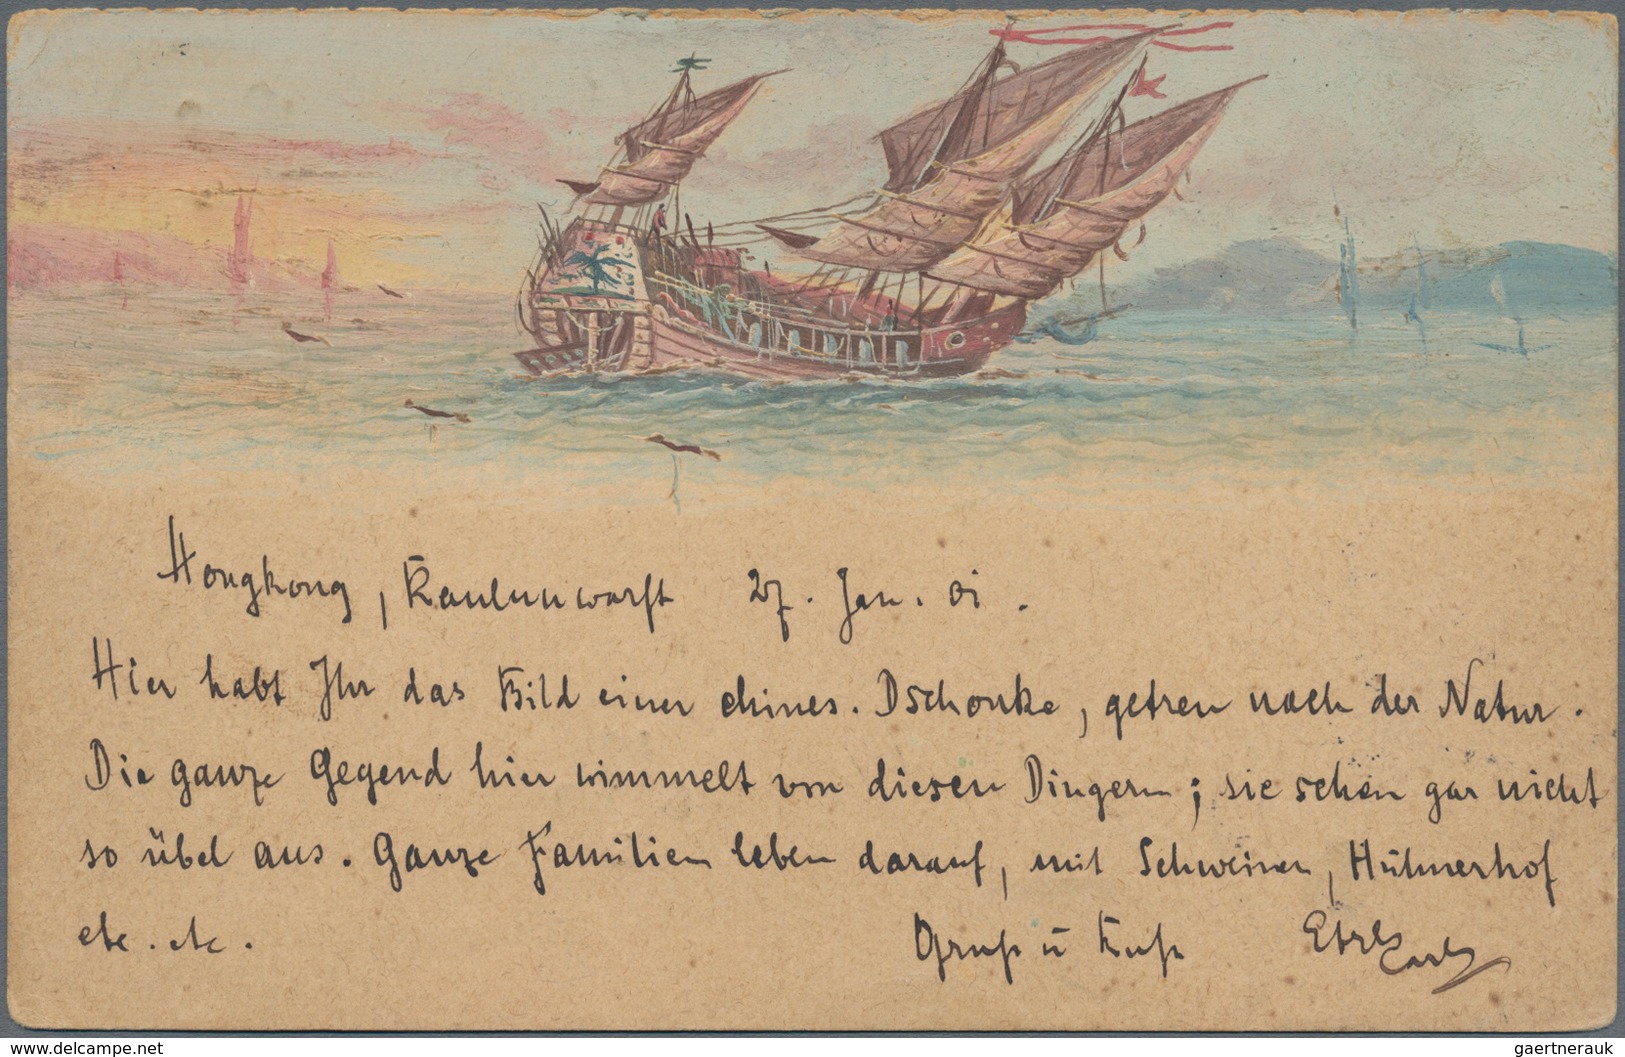 Hongkong, Kaulunwarft 27. Jan. 01.
Hier habt Ihr das Bild einer chines. Dschonke, getreu nach der Natur.
Die ganze Gegend hier wimmelt von diesen Dingern; sie sehen gar nicht
so übel aus. Ganze Familien leben darauf, mit Schweinen, Hühnerhof
etc. etc. Gruß u Kuß Carl
www.delcampe.net gaertnerauk